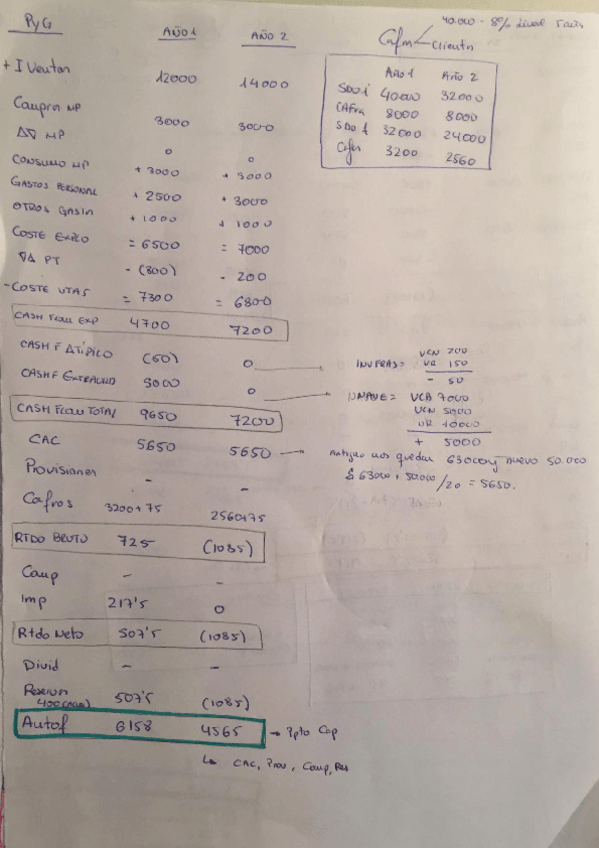 PyG AÑO 1 AÑO 2
+ I Ventas 12000 14000
Compra MP 3000 3000
Δ∇ MP 0 0
CONSUMO MP +3000 +3000
GASTOS PERSONAL +2500 +3000
OTROS GASTN +1000 +1000
COSTE EXPLO =6500 =7000
∇Δ PT -(800) -200
-COSTE VTAS =7300 =6800
CASH FLOW EXP 4700 7200
CASH F ATÍPICO (50) 0
CASHF EXTRAORD 5000 0
CASH FLOW TOTAL 9650 7200
CAC 5650 5650
Provisiones - -
Cafros 3200+75 2560+75
RTDO BRUTO 725 (1085)
Comp - -
Imp 217'5 0
Rtdo Neto 507'5 (1085)
Divid - -
507'5 (1085)
Autof 6158 4565 → Ppto Cap
↳ CAC, Prov, Comp, Res
40.000 - 8% lineal 5 años
Clientes
Año 1 Año 2
SDO i 40000 32000
CAFra 8000 8000
SDO f 32000 24000
Cafos 3200 2560
INVFRAS = VCN 200
VR 150
- 50
1 NAVE = VCB 7000
VCN 5000
VR 10000
+ 5000
Antiguo nos quedan 63000 y nuevo 50.000
63000 + 50.000/20 = 5650.